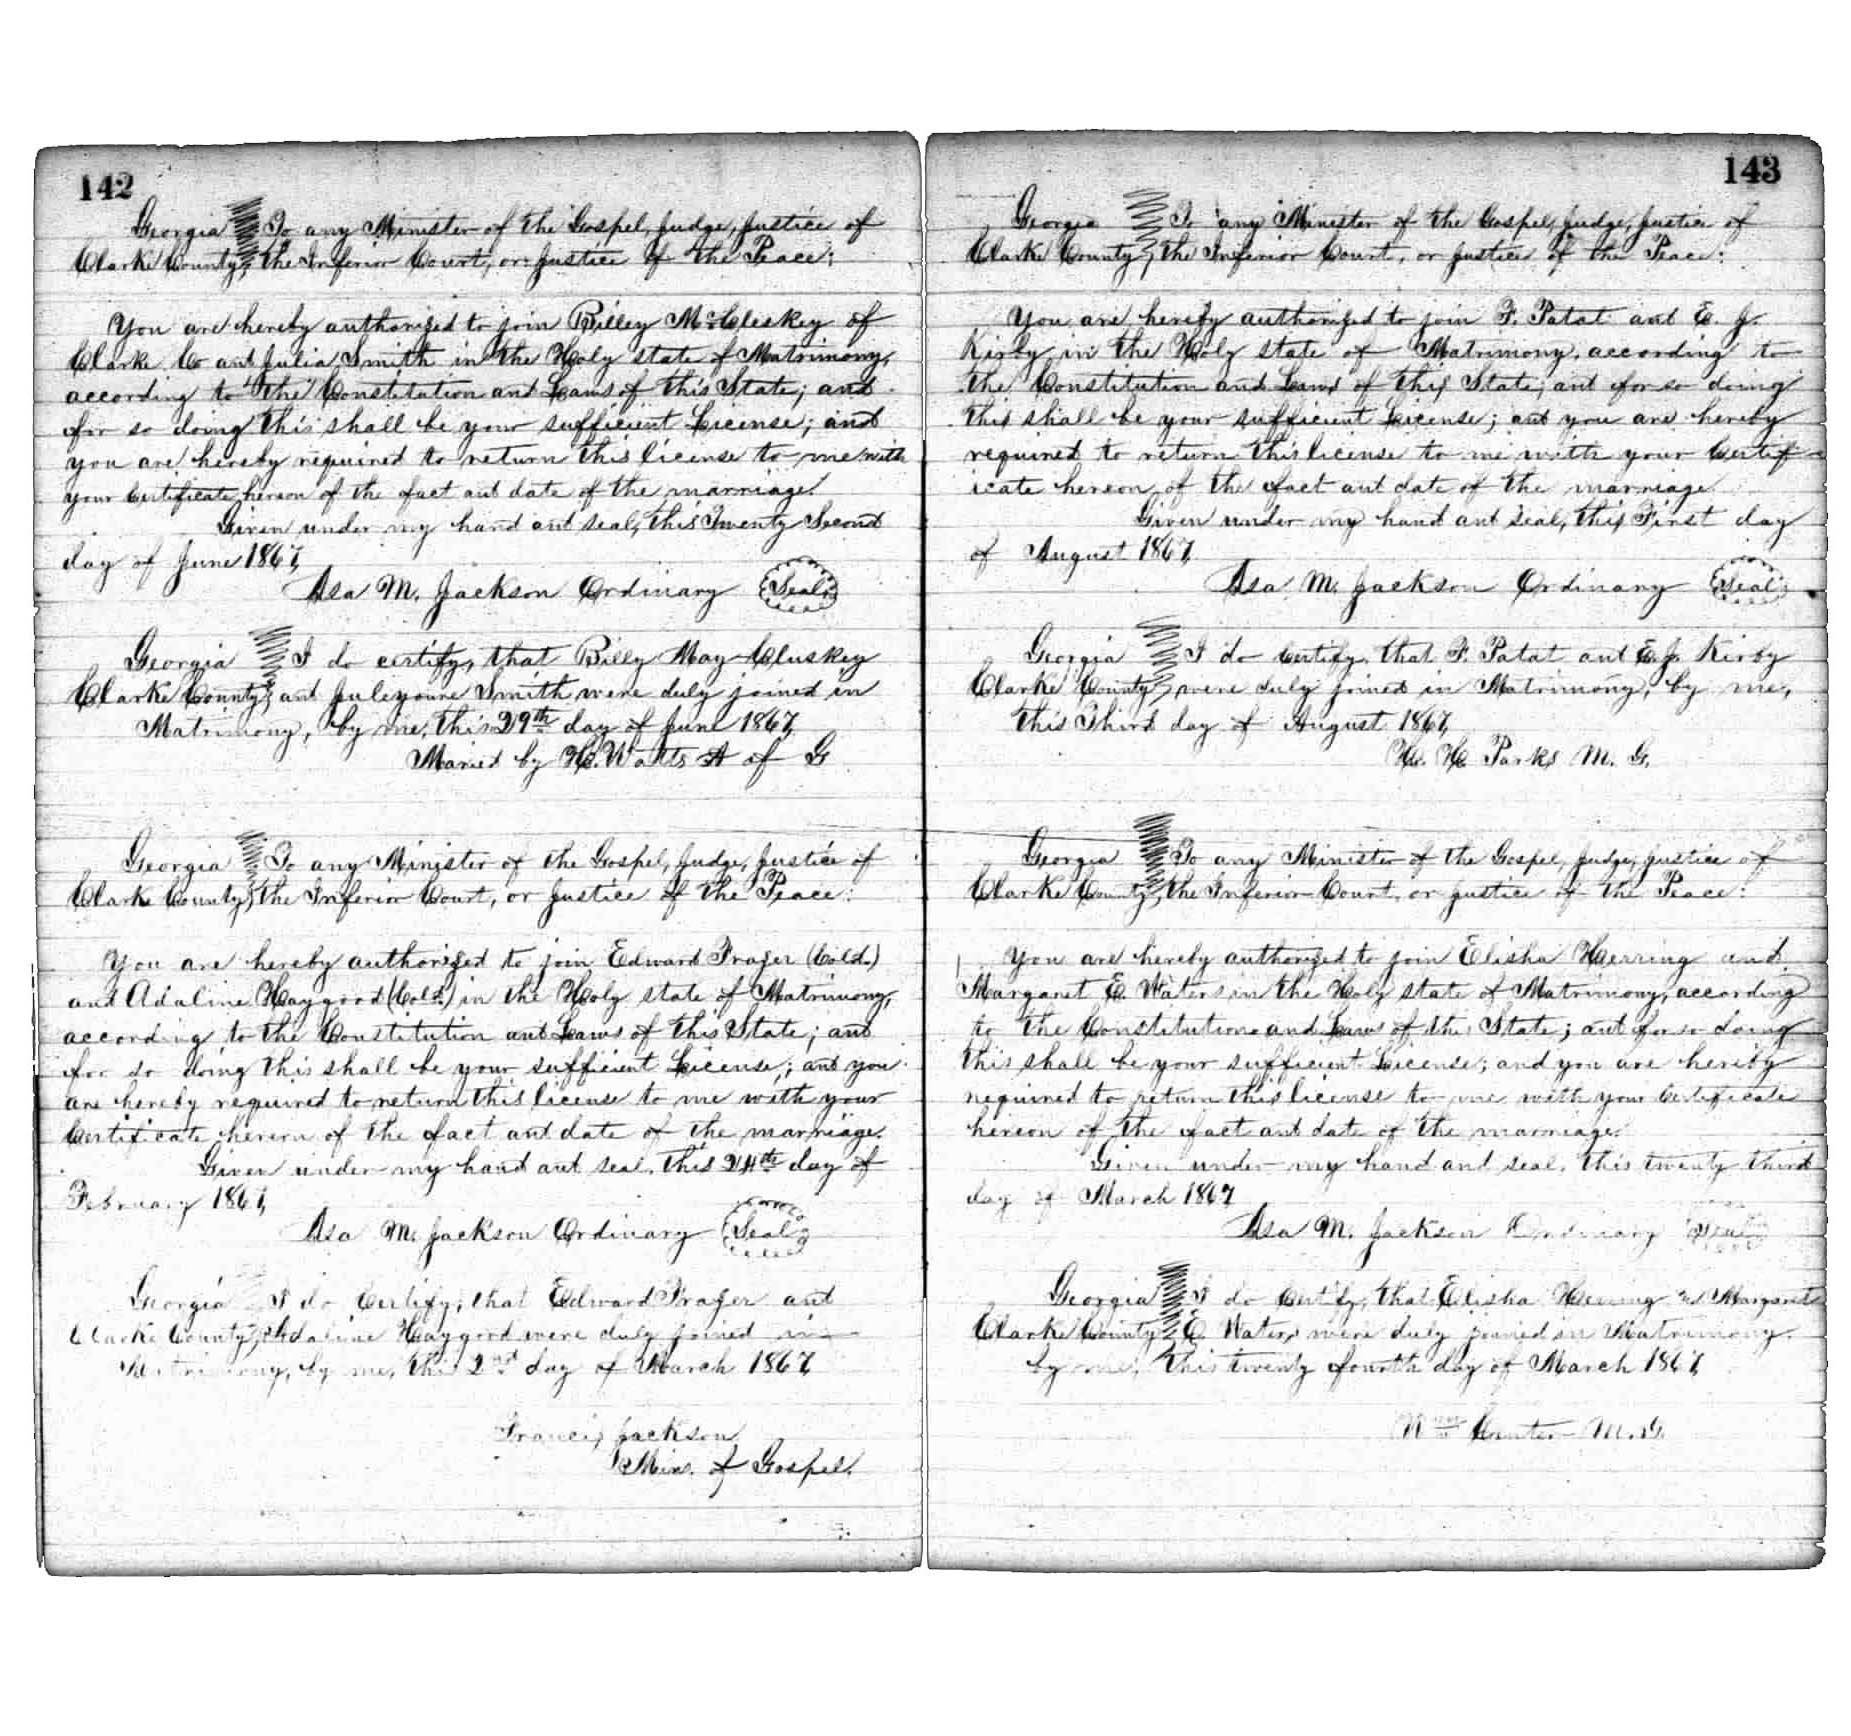 142
Georgia To any Minister of the Gospel, Judge, Justice of
Clarke County, the Inferior Court, or Justice of the Peace:
You are hereby authorized to join Billey McCleskey of
Clarke Co and Julia Smith in the Holy state of Matrimony,
according to the Constitution and Laws of this State; and
for so doing this shall be your sufficient License; and
you are hereby required to return this license to me with
your Certificate hereon of the fact and date of the marriage.
Given under my hand and seal, this Twenty Second
day of June 1867,
Asa M. Jackson Ordinary Seal
Georgia I do certify, that Billy May Cluskey
Clarke County, and Juleyoune Smith were duly joined in
Matrimony, by me, this 29th day of June 1867,
Maried by H. Watts A of G
Georgia To any Minister of the Gospel, Judge, Justice of
Clarke County, the Inferior Court, or Justice of the Peace:
You are hereby authorized to join Edward Frazer (Cold.)
and Adaline Haygood (Cold.) in the Holy state of Matrimony,
according to the Constitution and Laws of this State; and
for so doing this shall be your sufficient License; and you
are hereby required to return this license to me with your
Certificate hereon of the fact and date of the marriage.
Given under my hand and seal, this 24th day of
February 1867,
Asa M. Jackson Ordinary Seal
Georgia I do Certify, that Edward Frazer and
Clarke County, Adaline Haygood were duly joined in
Matrimony, by me, this 2nd day of March 1867,
Francis Jackson
Min. of Gospel.
143
Georgia To any Minister of the Gospel, Judge, Justice of
Clarke County, the Inferior Court, or Justice of the Peace:
You are hereby authorized to join F. Patat and E. J.
Kirby in the Holy state of Matrimony, according to
the Constitution and Laws of this State; and for so doing
this shall be your sufficient License; and you are hereby
required to return this license to me with your Certif-
icate hereon of the fact and date of the marriage.
Given under my hand and seal, this First day
of August 1867,
Asa M. Jackson Ordinary Seal
Georgia I do Certify, that F. Patat and E. J. Kirby
Clarke County, were duly joined in Matrimony, by me,
this Third day of August 1867,
H. H. Parks M. G.
Georgia To any Minister of the Gospel, Judge, Justice of
Clarke County, the Inferior Court, or Justice of the Peace:
You are hereby authorized to join Elisha Herring and
Margaret E. Waters in the Holy state of Matrimony, according
to the Constitution and Laws of this State; and for so doing
this shall be your sufficient License; and you are hereby
required to return this license to me with your Certificate
hereon of the fact and date of the marriage.
Given under my hand and seal, this twenty third
day of March 1867
Asa M. Jackson Ordinary Seal
Georgia I do Certify, that Elisha Herring and Margaret
Clarke County E. Waters were duly joined in Matrimony.
by me, this twenty fourth day of March 1867,
Wm Canter M. G.